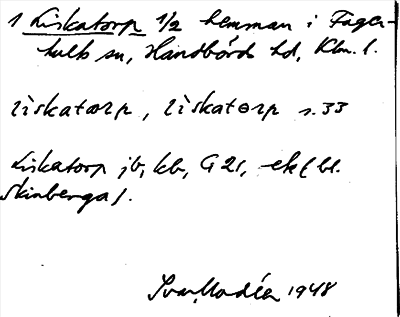 1 Liskatorp 1/2 hemman i Fager-
hults sn, Handbörds hd, Klm. l.
liskatorp, liskatorp s. 33
Liskatorp jb, kb, G 21, ek (bl.
Skinberga).
Ivar Modéer 1948